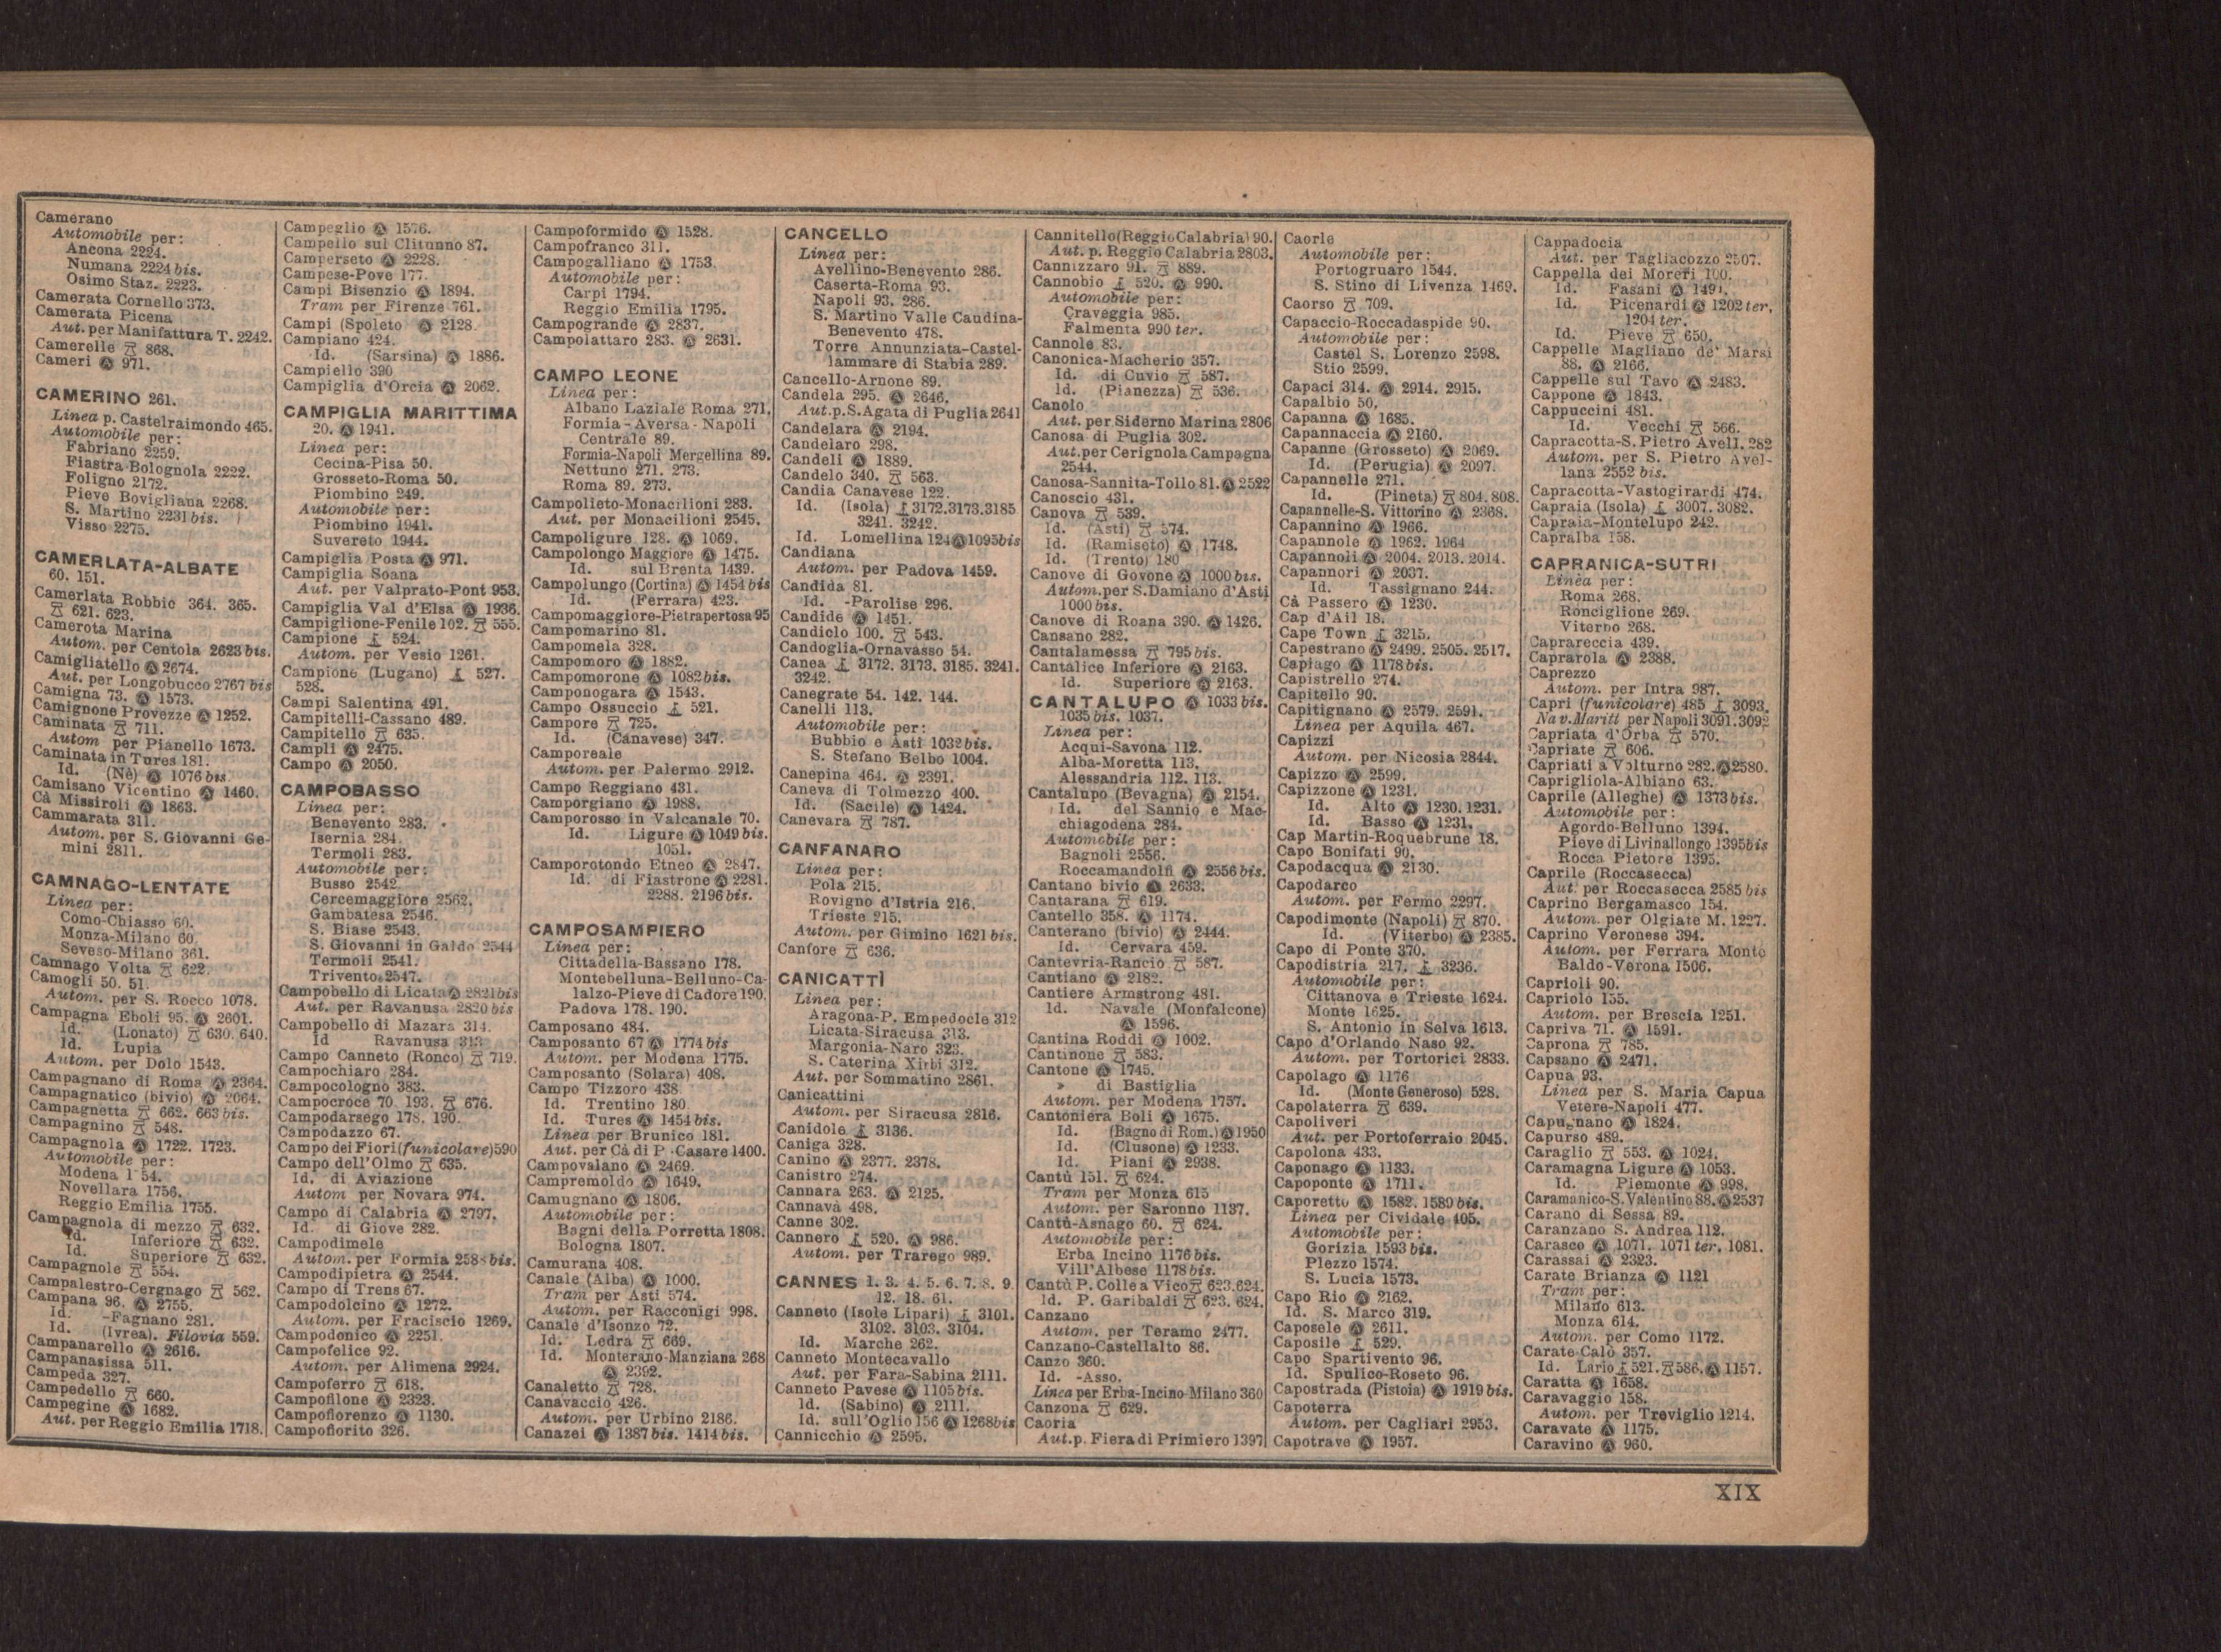 Camerano
Automobile per:
Ancona 2224.
Numana 2224 bis.
Osimo Staz. 2223.
Camerata Cornello 373.
Camerata Picena
Aut. per Manifattura T. 2242.
Camerelle 868.
Cameri Ⓐ 971.
CAMERINO 261.
Linea p. Castelraimondo 465.
Automobile per:
Fabriano 2259.
Fiastra-Bolognola 2222.
Foligno 2172.
Pieve Bovigliana 2268.
S. Martino 2231 bis.
Visso 2275.
CAMERLATA-ALBATE
60. 151.
Camerlata Robbic 364. 365.
621. 623.
Camerota Marina
Autom. per Centola 2623 bis.
Camigliatello Ⓐ 2674.
Aut. per Longobucco 2767 bis
Camigna 73. Ⓐ 1573.
Camignone Provezze Ⓐ 1252.
Caminata 711.
Autom per Pianello 1673.
Caminata in Tures 181.
Id. (Nè) Ⓐ 1076 bis.
Camisano Vicentino Ⓐ 1460.
Cà Missiroli Ⓐ 1863.
Cammarata 311.
Autom. per S. Giovanni Ge-
mini 2811.
CAMNAGO-LENTATE
Linea per:
Como-Chiasso 60.
Monza-Milano 60.
Seveso-Milano 361.
Camnago Volta 622.
Camogli 50. 51.
Autom. per S. Rocco 1078.
Campagna Eboli 95. Ⓐ 2601.
Id. (Lonato) 630. 640.
Id. Lupia
Autom. per Dolo 1543.
Campagnano di Roma Ⓐ 2364.
Campagnatico (bivio) Ⓐ 2064.
Campagnetta 662. 663 bis.
Campagnino 548.
Campagnola Ⓐ 1722. 1723.
Automobile per:
Modena
Novellara 1756.
Reggio Emilia 1755.
Campagnola di mezzo 632.
Id. Inferiore 632.
Id. Superiore 632.
Campagnole 554.
Campalestro-Cergnago 562.
Campana 96. Ⓐ 2755.
Id. -Fagnano 281.
Id. (Ivrea). Filovia 559.
Campanarello Ⓐ 2616.
Campanasissa 511.
Campeda 327.
Campedello 660.
Campegine Ⓐ 1682.
Aut. per Reggio Emilia 1718.
Campeglio Ⓐ 1576.
Campello sul Clitunno 87.
Camperseto Ⓐ 2228.
Campese-Pove 177.
Campi Bisenzio Ⓐ 1894.
Tram per Firenze 761.
Campi (Spoleto Ⓐ 2128.
Campiano 424.
Id. (Sarsina) Ⓐ 1886.
Campiello 390
Campiglia d'Orcia Ⓐ 2062.
CAMPIGLIA MARITTIMA
20. Ⓐ 1941.
Linea per:
Cecina-Pisa 50.
Grosseto-Roma 50.
Piombino 249.
Automobile per:
Piombino 1941.
Suvereto 1944.
Campiglia Posta Ⓐ 971.
Campiglia Soana
Aut. per Valprato-Pont 953.
Campiglia Val d'Elsa Ⓐ 1936.
Campiglione-Fenile 102. 555.
Campione 524.
Autom. per Vesio 1261.
Campione (Lugano) 527.
528.
Campi Salentina 491.
Campitelli-Cassano 489.
Campitello 635.
Campli Ⓐ 2475.
Campo Ⓐ 2050.
CAMPOBASSO
Linea per:
Benevento 283.
Isernia 284.
Termoli 283.
Automobile per:
Busso 2542.
Cercemaggiore 2562.
Gambatesa 2546.
S. Biase 2543.
S. Giovanni in Galdo 2544
Termoli 2541.
Trivento 2547.
Campobello di Licata Ⓐ 2821 bis
Aut. per Ravanusa 2820 bis
Campobello di Mazara 314.
Id Ravanusa 313
Campo Canneto (Ronco) 719.
Campochiaro 284.
Campocologno 383.
Campocroce 70. 193. 676.
Campodarsego 178. 190.
Campodazzo 67.
Campo dei Fiori (funicolare) 590
Campo dell'Olmo 635.
Id. di Aviazione
Autom per Novara 974.
Campo di Calabria Ⓐ 2797.
Id. di Giove 282.
Campodimele
Autom. per Formia 258 bis.
Campodipietra Ⓐ 2544.
Campo di Trens 67.
Campodolcino Ⓐ 1272.
Autom. per Fraciscio 1269.
Campodonico Ⓐ 2251.
Campofelice 92.
Autom. per Alimena 2924.
Campoferro 618.
Campofilone Ⓐ 2323.
Campofiorenzo Ⓐ 1130.
Campofiorito 326.
Campoformido Ⓐ 1528.
Campofranco 311.
Campogalliano Ⓐ 1753.
Automobile per:
Carpi 1794.
Reggio Emilia 1795.
Campogrande Ⓐ 2837.
Campolattaro 283. Ⓐ 2631.
CAMPO LEONE
Linea per:
Albano Laziale Roma 271.
Formia - Aversa - Napoli
Centrale 89.
Formia-Napoli Mergellina 89.
Nettuno 271. 273.
Roma 89. 273.
Campolieto-Monacilioni 283.
Aut. per Monacilioni 2545.
Campoligure 128. Ⓐ 1069.
Campolongo Maggiore Ⓐ 1475.
Id. sul Brenta 1439.
Campolungo (Cortina) Ⓐ 1454 bis
Id. (Ferrara) 423.
Campomaggiore-Pietrapertosa 95
Campomarino 81.
Campomela 328.
Campomoro Ⓐ 1882.
Campomorone Ⓐ 1082 bis.
Camponogara Ⓐ 1543.
Campo Ossuccio 521.
Campore 725.
Id. (Canavese) 347.
Camporeale
Autom. per Palermo 2912.
Campo Reggiano 431.
Camporgiano Ⓐ 1988.
Camporosso in Valcanale 70.
Id. Ligure Ⓐ 1049 bis.
1051.
Camporotondo Etneo Ⓐ 2847.
Id. di Fiastrone Ⓐ 2281.
2288. 2196 bis.
CAMPOSAMPIERO
Linea per:
Cittadella-Bassano 178.
Montebelluna-Belluno-Ca-
lalzo-Pieve di Cadore 190.
Padova 178. 190.
Camposano 484.
Camposanto 67 Ⓐ 1774 bis
Autom. per Modena 1775.
Camposanto (Solara) 408.
Campo Tizzoro 438
Id. Trentino 180.
Id. Tures Ⓐ 1454 bis.
Linea per Brunico 181.
Aut. per Cà di P. Casare 1400.
Campovalano Ⓐ 2469.
Campremoldo Ⓐ 1649.
Camugnano Ⓐ 1806.
Automobile per:
Bagni della Porretta 1808.
Bologna 1807.
Camurana 408.
Canale (Alba) Ⓐ 1000.
Tram per Asti 574.
Autom. per Racconigi 998.
Canale d'Isonzo 72.
Id. Ledra 669.
Id. Monterano-Manziana 268
Ⓐ 2392.
Canaletto 728.
Canavaccio 426.
Autom. per Urbino 2186.
Canazei Ⓐ 1387 bis. 1414 bis.
CANCELLO
Linea per:
Avellino-Benevento 286.
Caserta-Roma 93.
Napoli 93. 286.
S. Martino Valle Caudina-
Benevento 478.
Torre Annunziata-Castel-
lammare di Stabia 289.
Cancello-Arnone 89.
Candela 295. Ⓐ 2646.
Aut. p. S. Agata di Puglia 2641
Candelara Ⓐ 2194.
Candelaro 298.
Candeli Ⓐ 1889.
Candelo 340. 563.
Candia Canavese 122.
Id. (Isola) 3172. 3173. 3185
3241. 3242.
Id. Lomellina 124 Ⓐ 1095 bis
Candiana
Autom. per Padova 1459.
Candida 81.
Id. -Parolise 296.
Candide Ⓐ 1451.
Candiolo 100. 543.
Candoglia-Ornavasso 54.
Canea 3172. 3173. 3185. 3241.
3242.
Canegrate 54. 142. 144.
Canelli 113.
Automobile per:
Bubbio e Asti 1032 bis.
S. Stefano Belbo 1004.
Canepina 464. Ⓐ 2391.
Caneva di Tolmezzo 400.
Id. (Sacile) Ⓐ 1424.
Canevara 787.
CANFANARO
Linea per:
Pola 215.
Rovigno d'Istria 216.
Trieste 215.
Autom. per Gimino 1621 bis.
Canfore 636.
CANICATTÌ
Linea per:
Aragona-P. Empedocle 312
Licata-Siracusa 313.
Margonia-Naro 323.
S. Caterina Xirbi 312.
Aut. per Sommatino 2861.
Canicattini
Autom. per Siracusa 2816.
Canidole 3136.
Caniga 328.
Canino Ⓐ 2377. 2378.
Canistro 274.
Cannara 263. Ⓐ 2125.
Cannavà 498.
Canne 302.
Cannero 520. Ⓐ 986.
Autom. per Trarego 989.
CANNES 1. 3. 4. 5. 6. 7. 8. 9.
12. 18. 61.
Canneto (Isole Lipari) 3101.
3102. 3103. 3104.
Id. Marche 262.
Canneto Montecavallo
Aut. per Fara-Sabina 2111.
Canneto Pavese Ⓐ 1105 bis.
Id. (Sabino) Ⓐ 2111.
Id. sull'Oglio 156 Ⓐ 1268 bis
Cannicchio Ⓐ 2595.
Cannitello (Reggio Calabria) 90.
Aut. p. Reggio Calabria 2803.
Cannizzaro 91. 889.
Cannobio 520. Ⓐ 990.
Automobile per:
Craveggia 985.
Falmenta 990 ter.
Cannole 83.
Canonica-Macherio 357.
Id. di Cuvio 587.
Id. (Pianezza) 536.
Canolo
Aut. per Siderno Marina 2806
Canosa di Puglia 302.
Aut. per Cerignola Campagna
2544.
Canosa-Sannita-Tollo 81. Ⓐ 2522
Canoscio 431.
Canova 539.
Id. (Asti) 574.
Id. (Ramiseto) Ⓐ 1748.
Id. (Trento) 180
Canove di Govone Ⓐ 1000 bis.
Autom. per S. Damiano d'Asti
1000 bis.
Canove di Roana 390. Ⓐ 1426.
Cansano 282.
Cantalamessa 795 bis.
Cantalice Inferiore Ⓐ 2163.
Id. Superiore Ⓐ 2163.
CANTALUPO Ⓐ 1033 bis.
1035 bis. 1037.
Linea per:
Acqui-Savona 112.
Alba-Moretta 113.
Alessandria 112. 113.
Cantalupo (Bevagna) Ⓐ 2154.
Id. del Sannio e Mac-
chiagodena 284.
Automobile per:
Bagnoli 2556.
Roccamandolfi Ⓐ 2556 bis.
Cantano bivio Ⓐ 2633.
Cantarana 619.
Cantello 358. Ⓐ 1174.
Canterano (bivio) Ⓐ 2444.
Id. Cervara 459.
Cantevria-Rancio 587.
Cantiano Ⓐ 2182.
Cantiere Armstrong 481.
Id. Navale (Monfalcone)
Ⓐ 1596.
Cantina Roddi Ⓐ 1002.
Cantinone 583.
Cantone Ⓐ 1745.
» di Bastiglia
Autom. per Modena 1757.
Cantoniera Boli Ⓐ 1675.
Id. (Bagno di Rom.) Ⓐ 1950
Id. (Clusone) Ⓐ 1233.
Id. Piani Ⓐ 2938.
Cantù 151. 624.
Tram per Monza 615
Autom. per Saronno 1137.
Cantù-Asnago 60. 624.
Automobile per:
Erba Incino 1176 bis.
Vill'Albese 1178 bis.
Cantù P. Colle a Vico 623. 624.
Id. P. Garibaldi 623. 624.
Canzano
Autom. per Teramo 2477.
Canzano-Castellalto 86.
Canzo 360.
Id. -Asso.
Linea per Erba-Incino-Milano 360
Canzona 629.
Caoria
Aut. p. Fiera di Primiero 1397
Caorle
Automobile per:
Portogruaro 1544.
S. Stino di Livenza 1469.
Caorso 709.
Capaccio-Roccadaspide 90.
Automobile per:
Castel S. Lorenzo 2598.
Stio 2599.
Capaci 314. Ⓐ 2914. 2915.
Capalbio 50.
Capanna Ⓐ 1685.
Capannaccia Ⓐ 2160.
Capanne (Grosseto) Ⓐ 2069.
Id. (Perugia) Ⓐ 2097.
Capannelle 271.
Id. (Pineta) 804. 808.
Capannelle-S. Vittorino Ⓐ 2368.
Capannino Ⓐ 1966.
Capannole Ⓐ 1962. 1964
Capannoli Ⓐ 2004. 2013. 2014.
Capannori Ⓐ 2037.
Id. Tassignano 244.
Cà Passero Ⓐ 1230.
Cap d'Ail 18.
Cape Town 3215.
Capestrano Ⓐ 2499. 2505. 2517.
Capiago Ⓐ 1178 bis.
Capistrello 274.
Capitello 90.
Capitignano Ⓐ 2579. 2591.
Linea per Aquila 467.
Capizzi
Autom. per Nicosia 2844.
Capizzo Ⓐ 2599.
Capizzone Ⓐ 1231.
Id. Alto Ⓐ 1230. 1231.
Id. Basso Ⓐ 1231.
Cap Martin-Roquebrune 18.
Capo Bonifati 90.
Capodacqua Ⓐ 2130.
Capodarco
Autom. per Fermo 2297.
Capodimonte (Napoli) 870.
Id. (Viterbo) Ⓐ 2385.
Capo di Ponte 370.
Capodistria 217. 3236.
Automobile per:
Cittanova e Trieste 1624.
Monte 1625.
S. Antonio in Selva 1613.
Capo d'Orlando Naso 92.
Autom. per Tortorici 2833.
Capolago Ⓐ 1176
Id. (Monte Generoso) 528.
Capolaterra 639.
Capoliveri
Aut. per Portoferraio 2045.
Capolona 433.
Caponago Ⓐ 1133.
Capoponte Ⓐ 1711.
Caporetto Ⓐ 1582. 1589 bis.
Linea per Cividale 405.
Automobile per:
Gorizia 1593 bis.
Plezzo 1574.
S. Lucia 1573.
Capo Rio Ⓐ 2162.
Id. S. Marco 319.
Caposele Ⓐ 2611.
Caposile 529.
Capo Spartivento 96.
Id. Spulico-Roseto 96.
Capostrada (Pistoia) Ⓐ 1919 bis.
Capoterra
Autom. per Cagliari 2953.
Capotrave Ⓐ 1957.
Cappadocia
Aut. per Tagliacozzo 2507.
Cappella dei Moreri 100.
Id. Fasani Ⓐ
Id. Picenardi Ⓐ 1202 ter,
1204 ter.
Id. Pieve 650.
Cappelle Magliano de' Marsi
88. Ⓐ 2166.
Cappelle sul Tavo Ⓐ 2483.
Cappone Ⓐ 1843.
Cappuccini 481.
Id. Vecchi 566.
Capracotta-S. Pietro Avell. 282
Autom. per S. Pietro Avel-
lana 2552 bis.
Capracotta-Vastogirardi 474.
Capraia (Isola) 3007. 3082.
Capraia-Montelupo 242.
Capralba 158.
CAPRANICA-SUTRI
Linea per:
Roma 268.
Ronciglione 269.
Viterbo 268.
Caprareccia 439.
Caprarola Ⓐ 2388.
Caprezzo
Autom. per Intra 987.
Capri (funicolare) 485 3093.
Nav. Maritt per Napoli 3091. 3092
Capriata d'Orba 570.
Capriate 606.
Capriati a Volturno 282. Ⓐ 2580.
Caprigliola-Albiano 63.
Caprile (Alleghe) Ⓐ 1373 bis.
Automobile per:
Agordo-Belluno 1394.
Pieve di Livinallongo 1395 bis
Rocca Pietore 1395.
Caprile (Roccasecca)
Aut. per Roccasecca 2585 bis
Caprino Bergamasco 154.
Autom. per Olgiate M. 1227.
Caprino Veronese 394.
Autom. per Ferrara Monte
Baldo-Verona 1506.
Caprioli 90.
Capriolo 155.
Autom. per Brescia 1251.
Capriva 71. Ⓐ 1591.
Caprona 785.
Capsano Ⓐ 2471.
Capua 93.
Linea per S. Maria Capua
Vetere-Napoli 477.
Capugnano Ⓐ 1824.
Capurso 489.
Caraglio 553. Ⓐ 1024.
Caramagna Ligure Ⓐ 1053.
Id. Piemonte Ⓐ 998.
Caramanico-S. Valentino 88. Ⓐ 2537
Carano di Sessa 89.
Caranzano S. Andrea 112.
Carasco Ⓐ 1071. 1071 ter. 1081.
Carassai Ⓐ 2323.
Carate Brianza Ⓐ 1121
Tram per:
Milano 613.
Monza 614.
Autom. per Como 1172.
Carate-Calò 357.
Id. Lario 521. 586. Ⓐ 1157.
Caratta Ⓐ 1658.
Caravaggio 158.
Autom. per Treviglio 1214.
Caravate Ⓐ 1175.
Caravino Ⓐ 960.
XIX